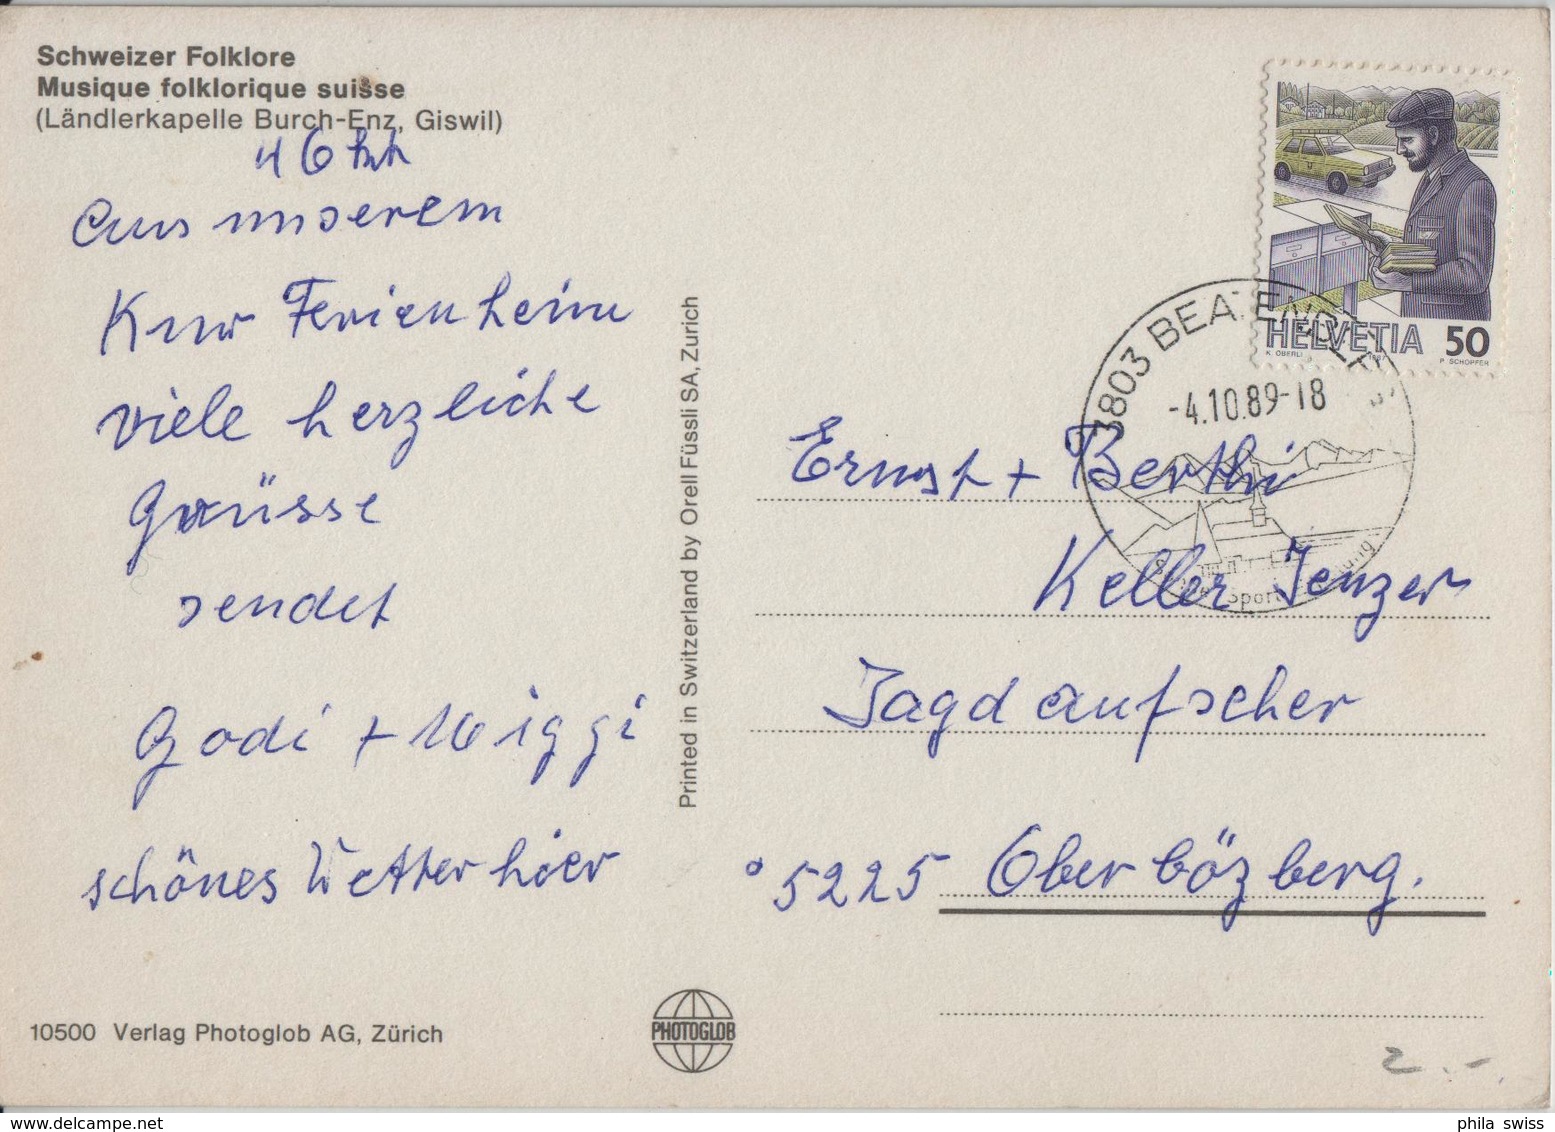 Schweizer Folklore
Musique folklorique suisse
(Ländlerkapelle Burch-Enz, Giswil)
aus unserem
Kur Ferienheim
viele herzliche
Grüsse
sendet
Godi + Miggi
schönes Wetter hier
10500 Verlag Photoglob AG, Zürich
Printed in Switzerland by Orell Füssli SA, Zurich
PHOTOGLOB
HELVETIA 50
K. OBERLI 1987 P. SCHOPFER
3803 BEATENBERG
-4.10.89-18
Sport
Ernst + Berthi
Keller Jenzer
Jagdaufseher
5225 Oberbözberg.
2.-
phila swiss
www.delcampe.net